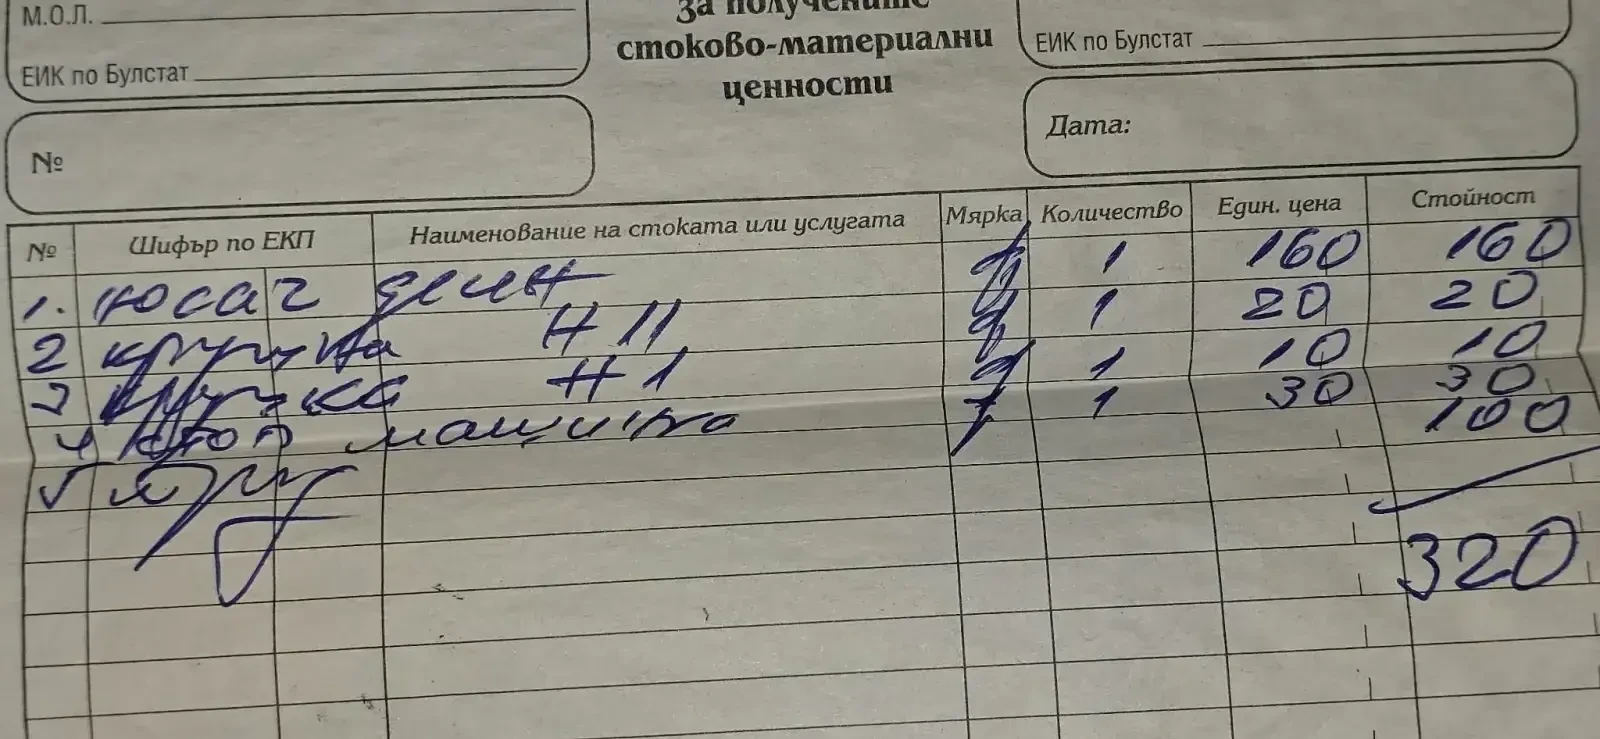 М.О.Л.
ЕИК по Булстат
за получените
стоково-материални
ценности
ЕИК по Булстат
№
Дата:
№ Шифър по ЕКП Наименование на стоката или услугата Мярка Количество Един. цена Стойност
1. носач 1 160 160
2 крушка H 11 1 20 20
3 крушка H 1 1 10 10
4 стоп машинка 1 30 30
5 100
320